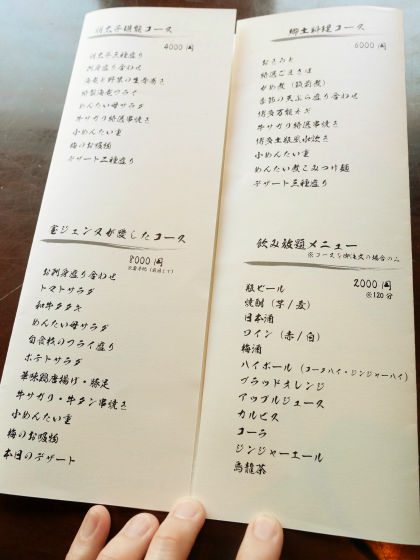 明太子堪能コース
4000円
明太子三種盛り
お刺身盛り合わせ
海老と野菜の生春巻き
特製海老フライ
めんたい母サラダ
牛サガリ特選串焼き
小めんたい重
梅のお吸物
デザート三種盛り
宝ジェンヌが愛したコース
8000円
お刺身盛り合わせ
トマトサラダ
和牛タタキ
めんたい母サラダ
旬食材のフライ盛り
ポテトサラダ
華味鶏唐揚げ・豚足
牛サガリ・牛タン串焼き
小めんたい重
梅のお吸物
本日のデザート
郷土料理コース
6000円
おきうと
特選ごまさば
がめ煮(筑前煮)
季節の天ぷら盛り合わせ
博多万能ネギ
牛サガリ特選串焼き
博多土鍋風水炊き
小めんたい重
めんたい煮こみつけ麺
デザート三種盛り
飲み放題メニュー
※コースを御注文の場合のみ
2000円
※120分
瓶ビール
焼酎(芋/麦)
日本酒
ワイン(赤/白)
梅酒
ハイボール(コークハイ・ジンジャーハイ)
ブラッドオレンジ
アップルジュース
カルピス
コーラ
ジンジャーエール
烏龍茶